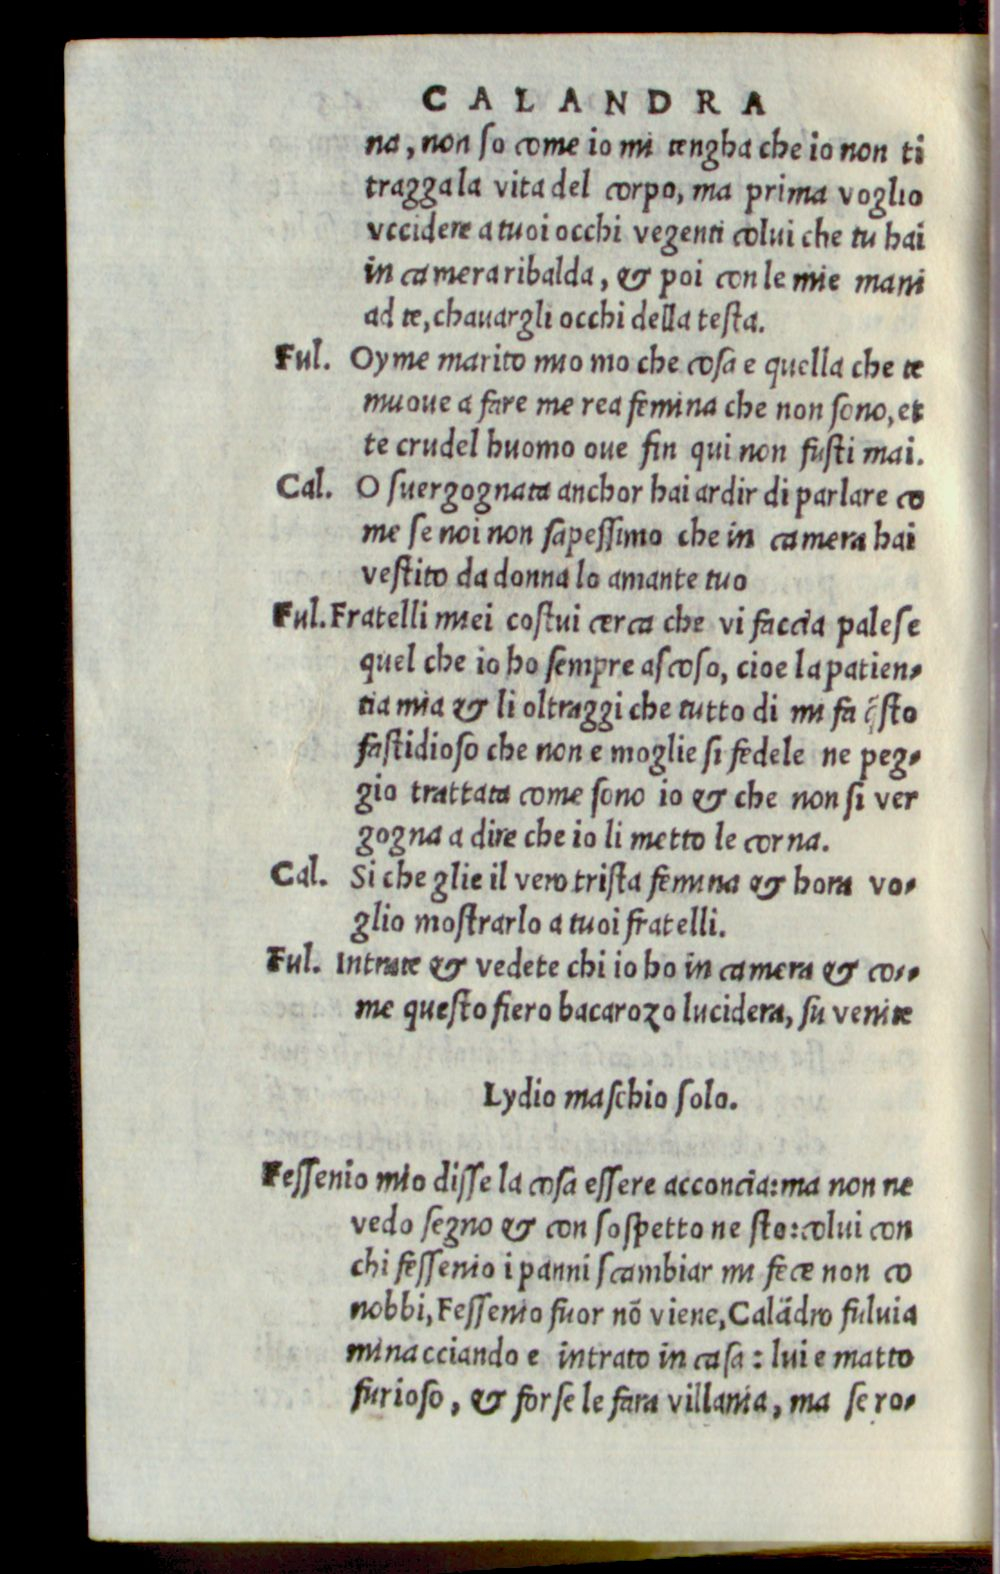 CALANDRA
na, non ſo come io mi tengha che io non ti
tragga la vita del corpo, ma prima voglio
vccidere a tuoi occhi vegenti colui che tu hai
in camera ribalda, & poi con le mie mani
ad te, chauargli occhi della teſta.
Ful. Oyme marito mio mo che coſa e quella che te
muoue a fare me rea femina che non ſono, et
te crudel huomo oue fin qui non fuſti mai.
Cal. O ſuergognata anchor hai ardir di parlare co
me ſe noi non ſapeſſimo che in camera hai
veſtito da donna lo amante tuo
Ful. Fratelli miei coſtui cerca che vi faccia paleſe
quel che io ho ſempre aſcoſo, cioe la patien-
tia mia & li oltraggi che tutto di mi fa q̃ſto
faſtidioſo che non e moglie ſi fedele ne peg-
gio trattata come ſono io & che non ſi ver
gogna a dire che io li metto le corna.
Cal. Si che glie il vero triſta femina & hora vo-
glio moſtrarlo a tuoi fratelli.
Ful. Intrate & vedete chi io ho in camera & co-
me queſto fiero bacarozo lucidera, ſu venite
Lydio maſchio ſolo.
Feſſenio mio diſſe la coſa eſſere acconcia: ma non ne
vedo ſegno & con ſoſpetto ne ſto: colui con
chi feſſenio i panni ſcambiar mi fece non co
nobbi, Feſſenio fuor nõ viene, Calãdro fuluia
minacciando e intrato in caſa: lui e matto
furioſo, & forſe le fara villania, ma ſe ro-